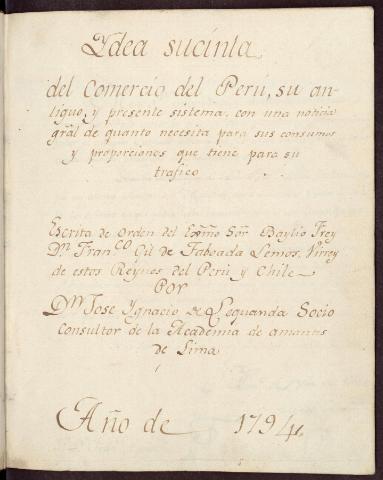 Ydea sucinta
del Comercio del Perú, su an-
tiguo, y presente sistema, con una noticia
gral de quanto necesita para sus consumos
y proporciones que tiene para su
trafico
Escrita de orden del Exmo Sor Baylio Frey
Dn Franco Gil de Taboada Lemos, Virrey
de estos Reynos del Perú y Chile
POR
Dn Jose Ygnacio de Lequanda Socio
Consultor de la Academia de amantes
de Lima
Año de 1794